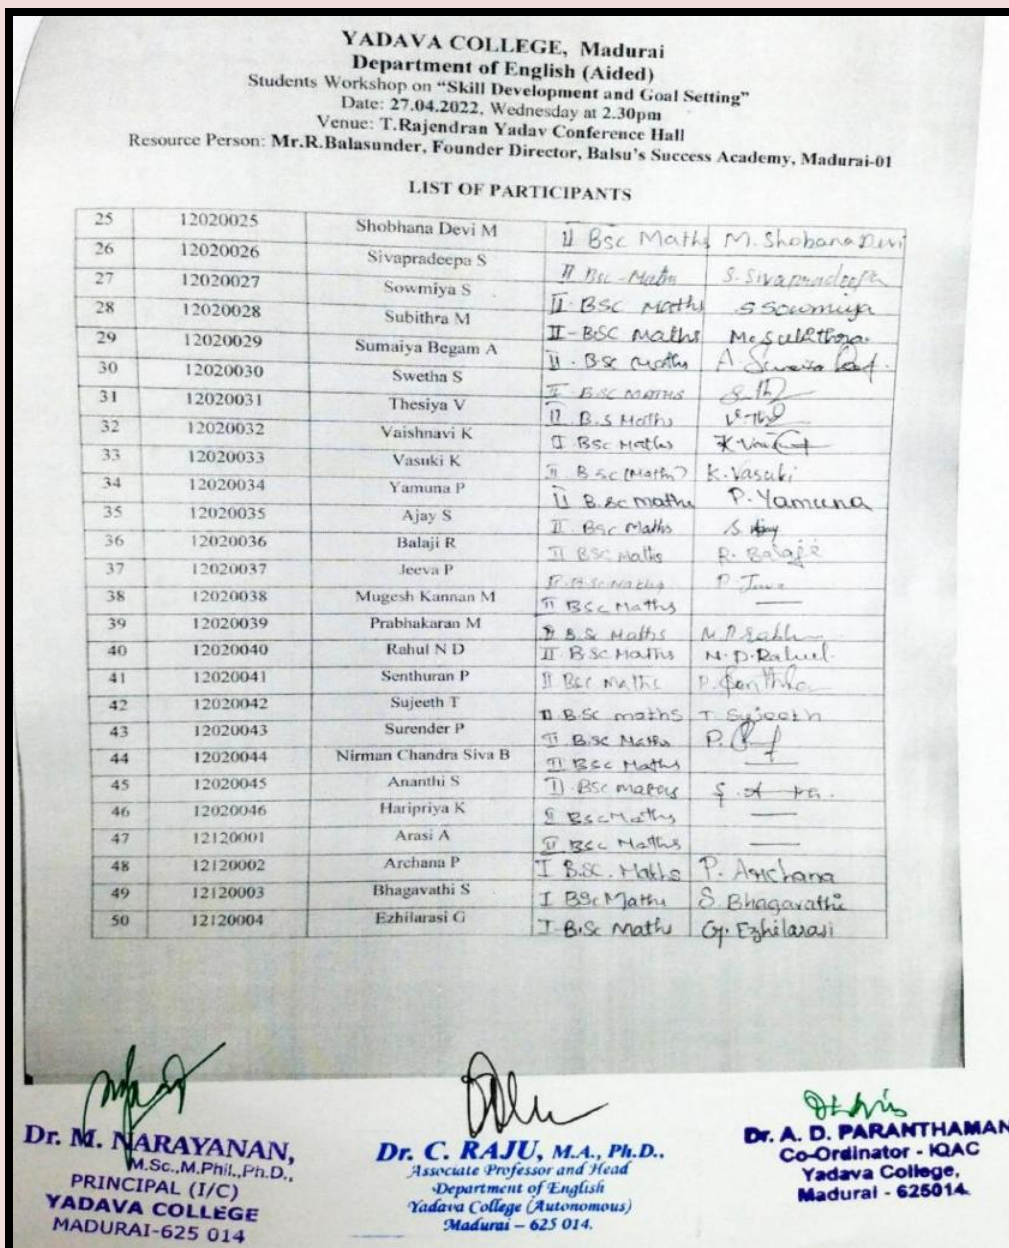 YADAVA COLLEGE, Madurai
Department of English (Aided)
Students Workshop on “Skill Development and Goal Setting”
Date: 27.04.2022, Wednesday at 2.30pm
Venue: T.Rajendran Yadav Conference Hall
Resource Person: Mr.R.Balasunder, Founder Director, Balsu's Success Academy, Madurai-01
LIST OF PARTICIPANTS
25 12020025 Shobhana Devi M II Bsc Maths M. Shobana Devi
26 12020026 Sivapradeepa S II Bsc - Maths S. Sivapradeepa
27 12020027 Sowmiya S II. BSC Maths S Sowmiya
28 12020028 Subithra M II - BSC Maths M. Subithra.
29 12020029 Sumaiya Begam A II. B.Sc Maths A
30 12020030 Swetha S II BSC MATHS
31 12020031 Thesiya V II B.S Maths
32 12020032 Vaishnavi K II BSc Maths
33 12020033 Vasuki K II B.Sc (Maths) K. Vasuki
34 12020034 Yamuna P II B.Sc maths P. Yamuna
35 12020035 Ajay S II. BSc Maths S.
36 12020036 Balaji R II BSC Maths R. Balaji
37 12020037 Jeeva P II. B.Sc Maths P.
38 12020038 Mugesh Kannan M II BSc Maths —
39 12020039 Prabhakaran M II B.Sc Maths
40 12020040 Rahul N D II. B.Sc Maths N. D. Rahul.
41 12020041 Senthuran P II BSc Maths P.
42 12020042 Sujeeth T II B.SC maths T. Sujeeth
43 12020043 Surender P II B.SC Maths P.
44 12020044 Nirman Chandra Siva B II BSc Maths —
45 12020045 Ananthi S II. BSc maths S.
46 12020046 Haripriya K II BSc Maths —
47 12120001 Arasi A II BSc Maths —
48 12120002 Archana P I B.SC. Maths P. Archana
49 12120003 Bhagavathi S I BSc Maths S. Bhagavathi
50 12120004 Ezhilarasi G I B.Sc Maths G. Ezhilarasi
Dr. M. NARAYANAN,
M.Sc.,M.Phil.,Ph.D.,
PRINCIPAL (I/C)
YADAVA COLLEGE
MADURAI-625 014
Dr. C. RAJU, M.A., Ph.D..
Associate Professor and Head
Department of English
Yadava College (Autonomous)
Madurai – 625 014.
Dr. A. D. PARANTHAMAN
Co-Ordinator - IQAC
Yadava College,
Madurai - 625014.